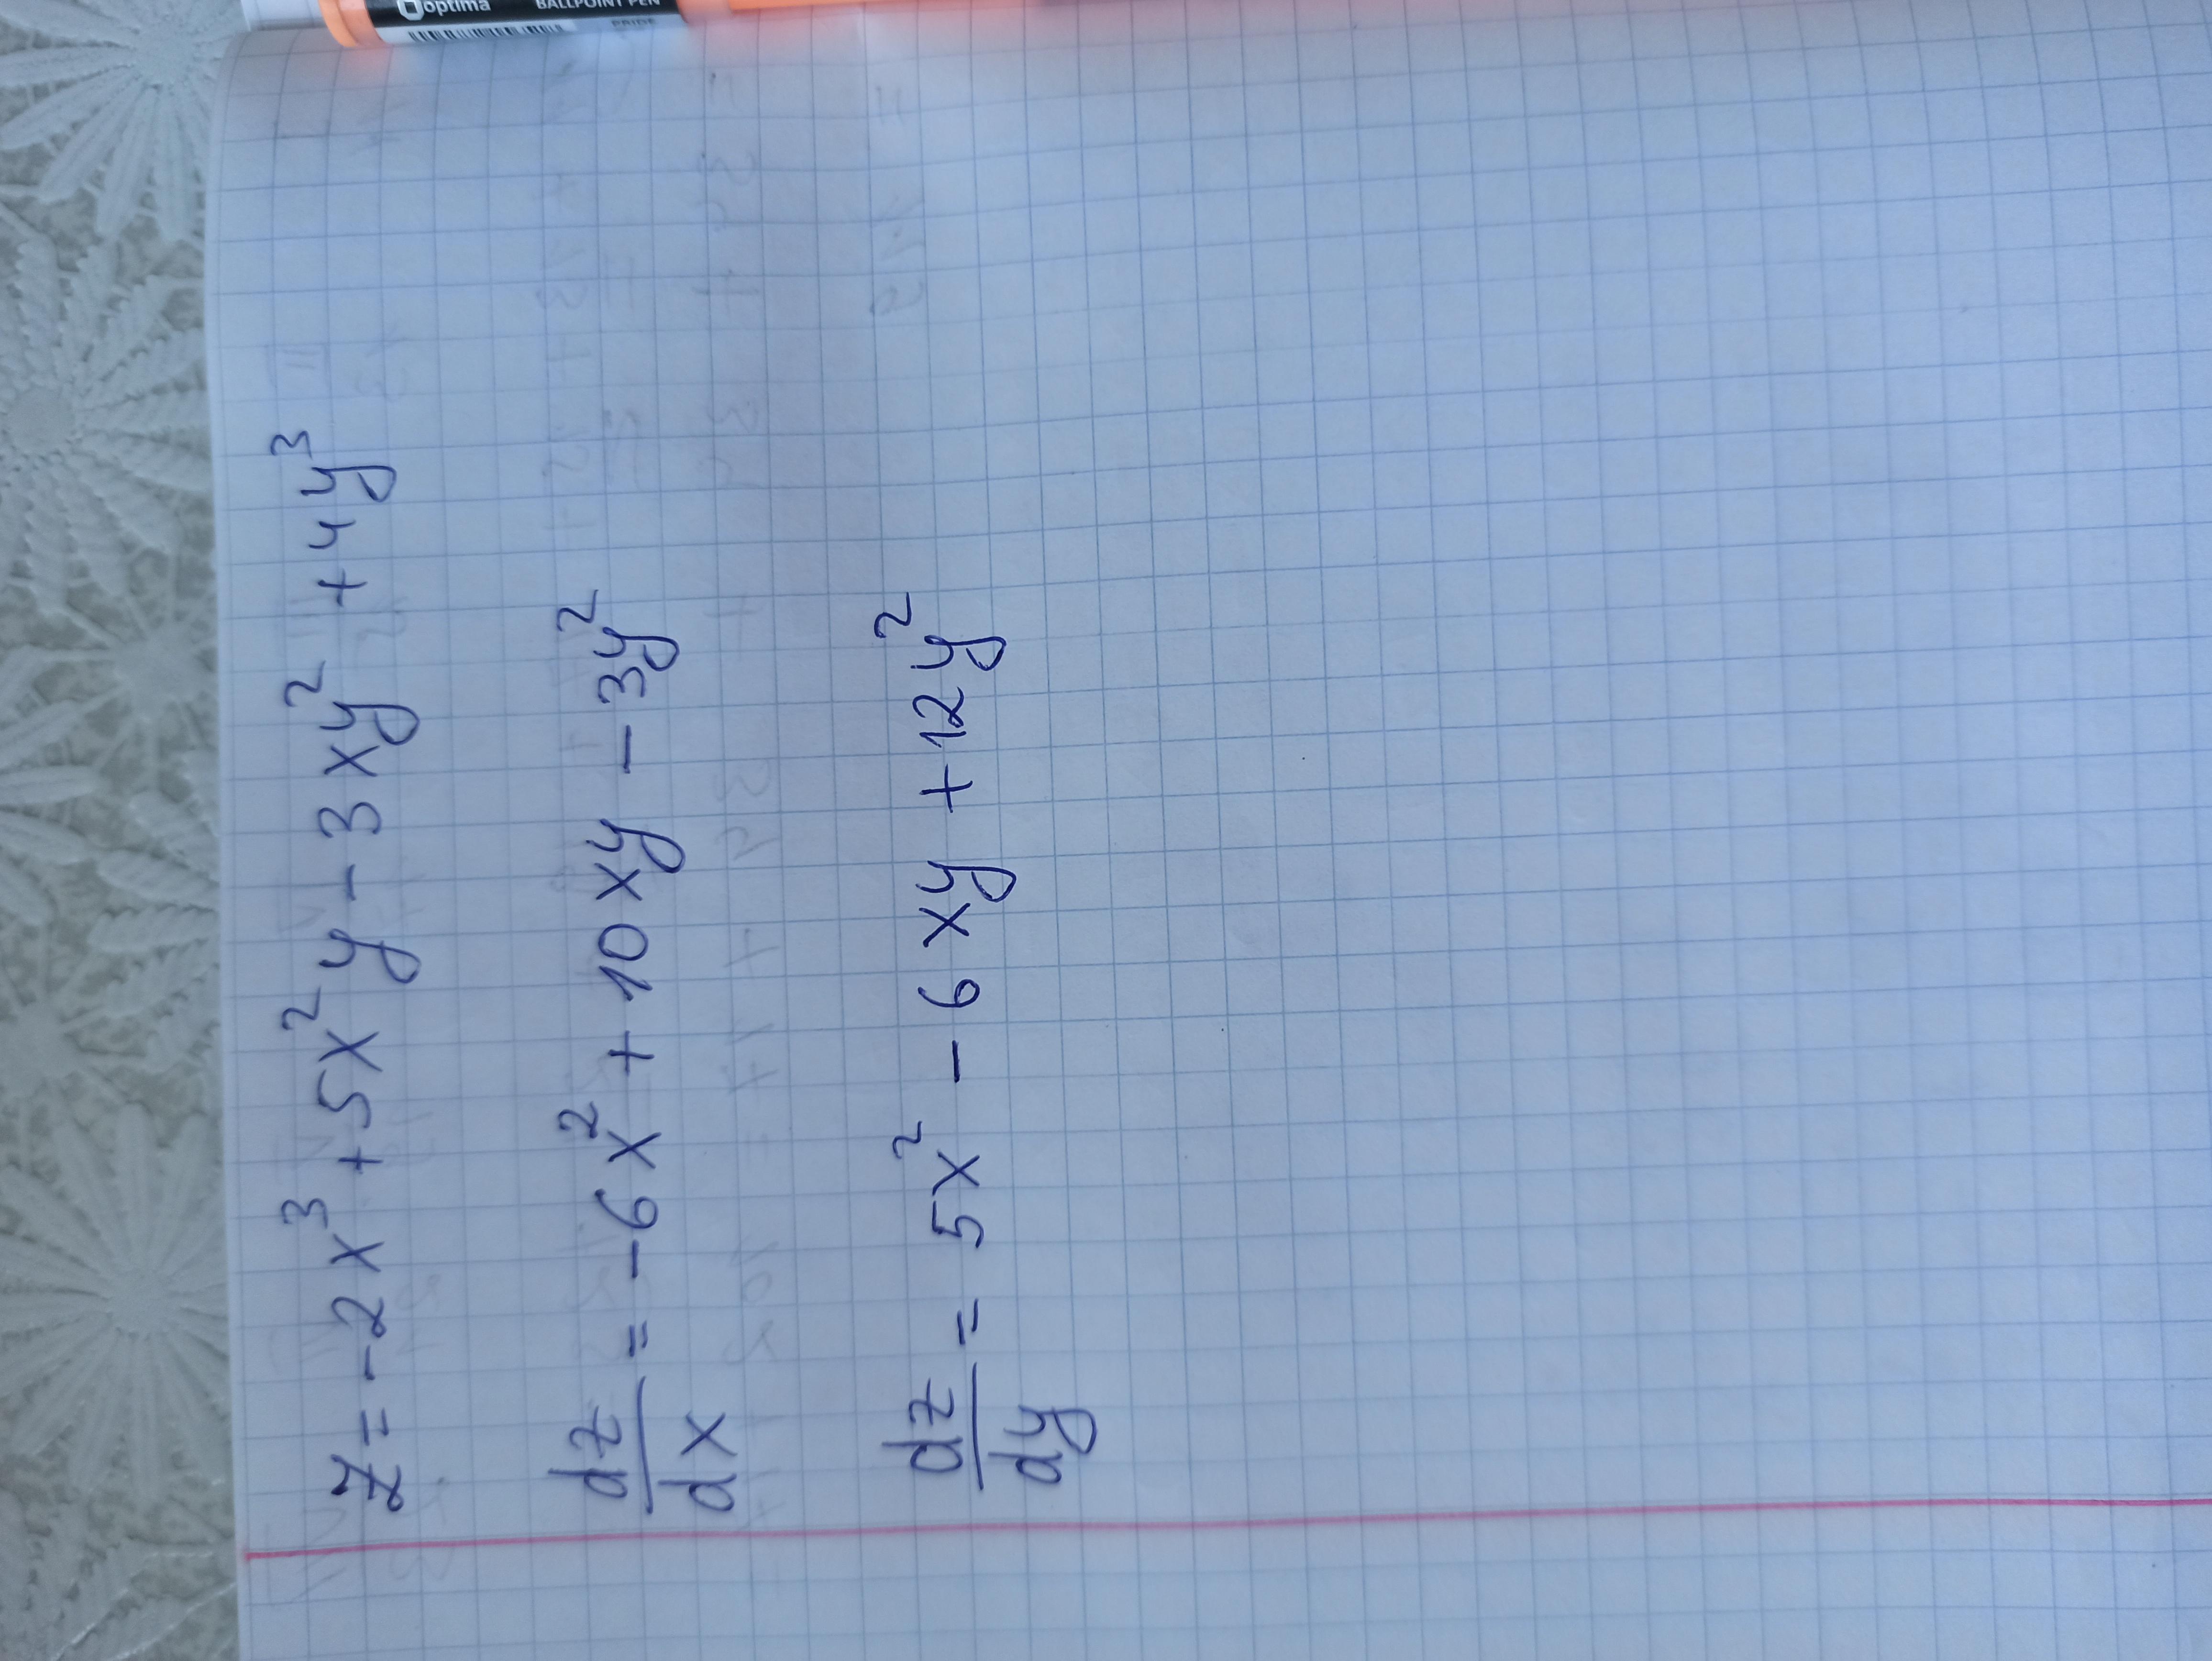 optima BALLPOINT PEN
PRIDE
z = -2x³ + 5x²y - 3xy² + 4y³
dz/dx = -6x² + 10xy - 3y²
dz/dy = 5x² - 6xy + 12y²